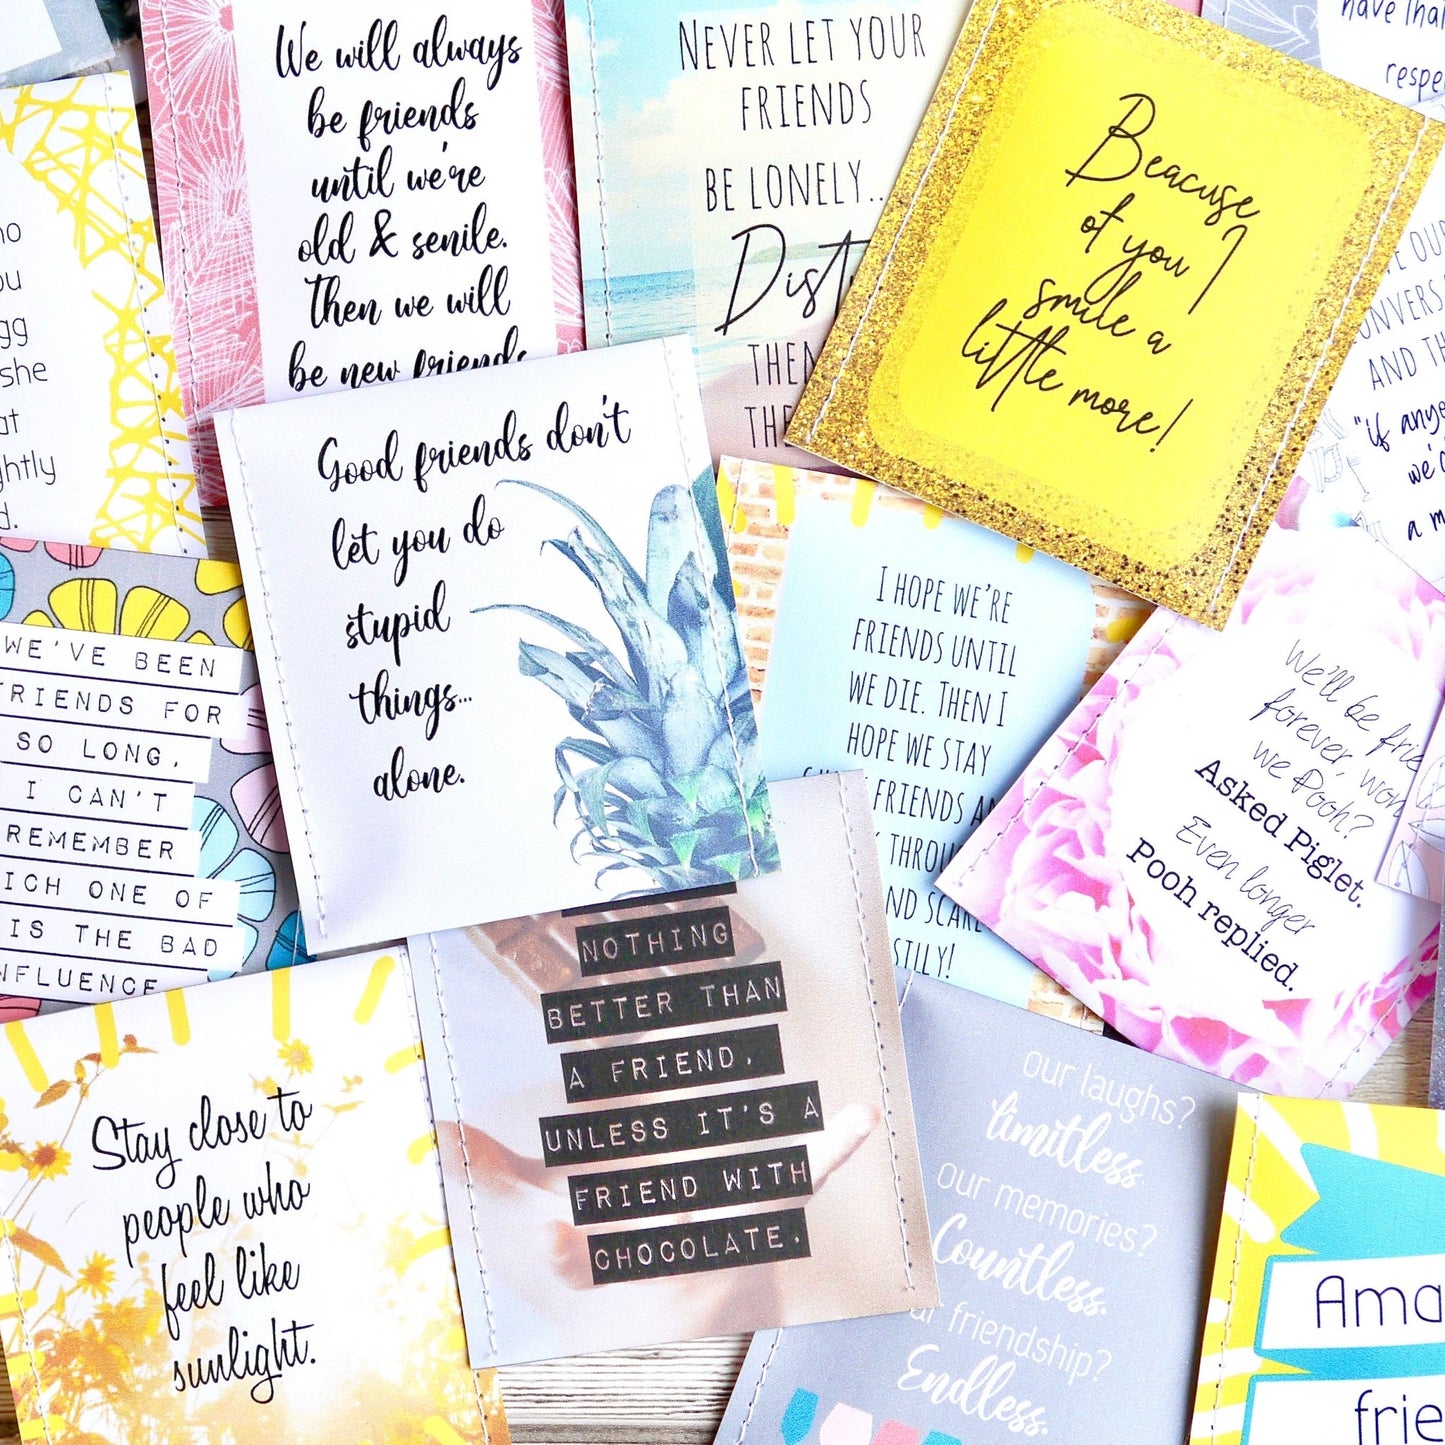 We will always
be friends
until we're
old & senile.
Then we will
be new friends
NEVER LET YOUR
FRIENDS
BE LONELY...
Beacuse
of you I
smile a
little more!
have that
she
Good friends don't
let you do
stupid
things...
alone.
I HOPE WE'RE
FRIENDS UNTIL
WE DIE. THEN I
HOPE WE STAY
FRIENDS
SILLY!
We'll be
forever,
we Pooh?
Asked Piglet.
Even longer
Pooh replied.
AND
"if
we'
a
WE'VE BEEN
FOR
SO LONG,
I CAN'T
REMEMBER
ONE OF
IS THE BAD
NOTHING
BETTER THAN
A FRIEND,
UNLESS IT'S A
FRIEND WITH
CHOCOLATE.
Stay close to
people who
feel like
sunlight.
our laughs?
limitless
our memories?
Countless.
friendship?
Endless.